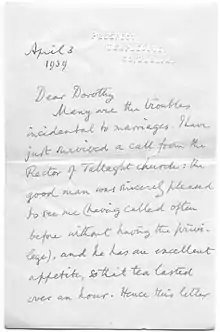 April 3
1939
Dear Dorothy
Many are the troubles
incidental to marriages. I have
just survived a call from the
Rector of Tallaght church: the
good man was sincerely pleased
to see me (having called often
before without having the privi-
lege), and he has an excellent
appetite, so that tea lasted
over an hour. Hence this letter